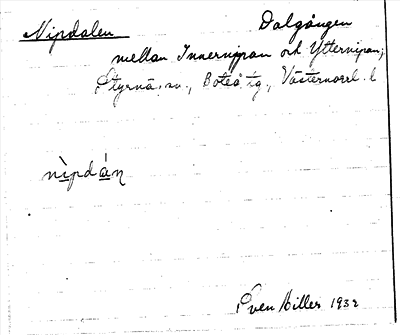 Nipdalen Dalgången
mellan Innernipan och Ytternipan,
Styrnäs sn., Boteå tg., Västernorrl. l
nìpdáṇ
Sven Hiller 1932